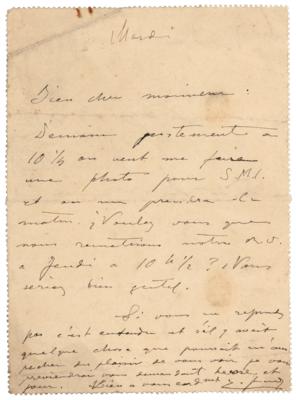 Mardi
Bien cher monsieur :
Demain justement à
10 ½ on veut me faire
une photo pour S.M.I.
et on me prendra le
matin. Voulez vous que
nous remettions notre R.V.
à Jeudi à 10 h ½ ? Vous
seriez bien gentil.
Si vous ne répondez
pas c'est entendu et s'il y avait
quelque chose qui pourrait m'em
pêcher du plaisir de vous voir je vous
préviendrai vous demandant heure et
jour. Bien à vous